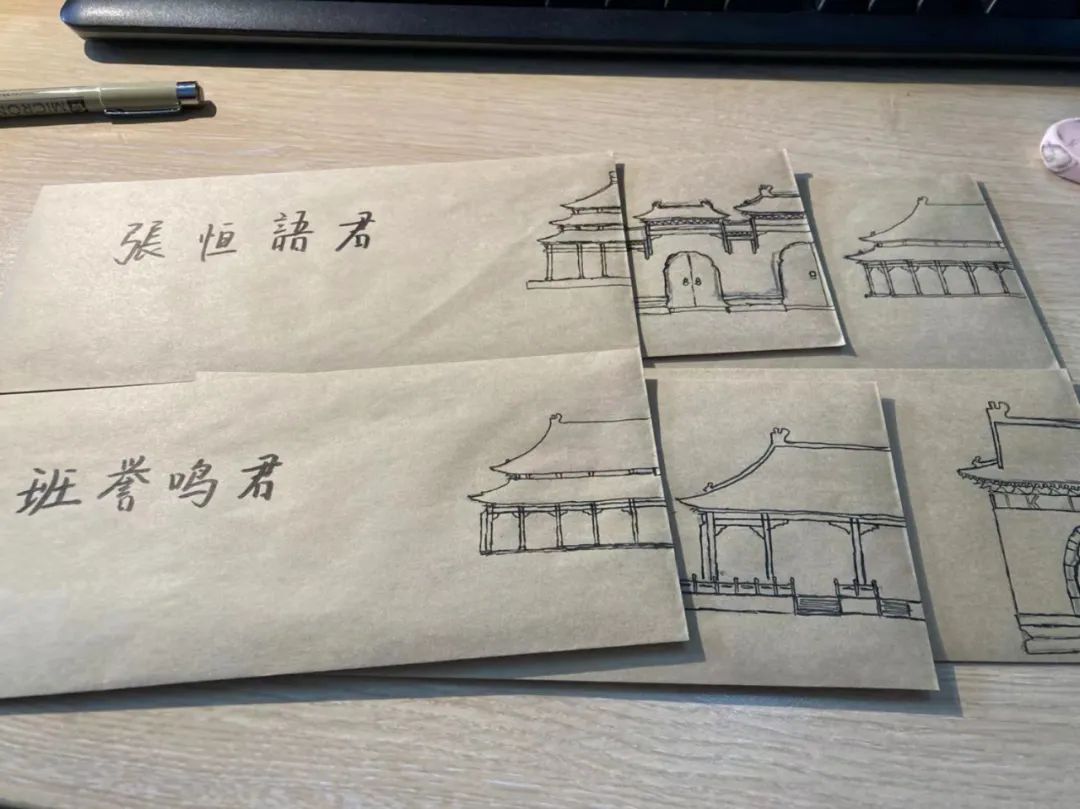 MICRON
張恒語君
班誉鸣君